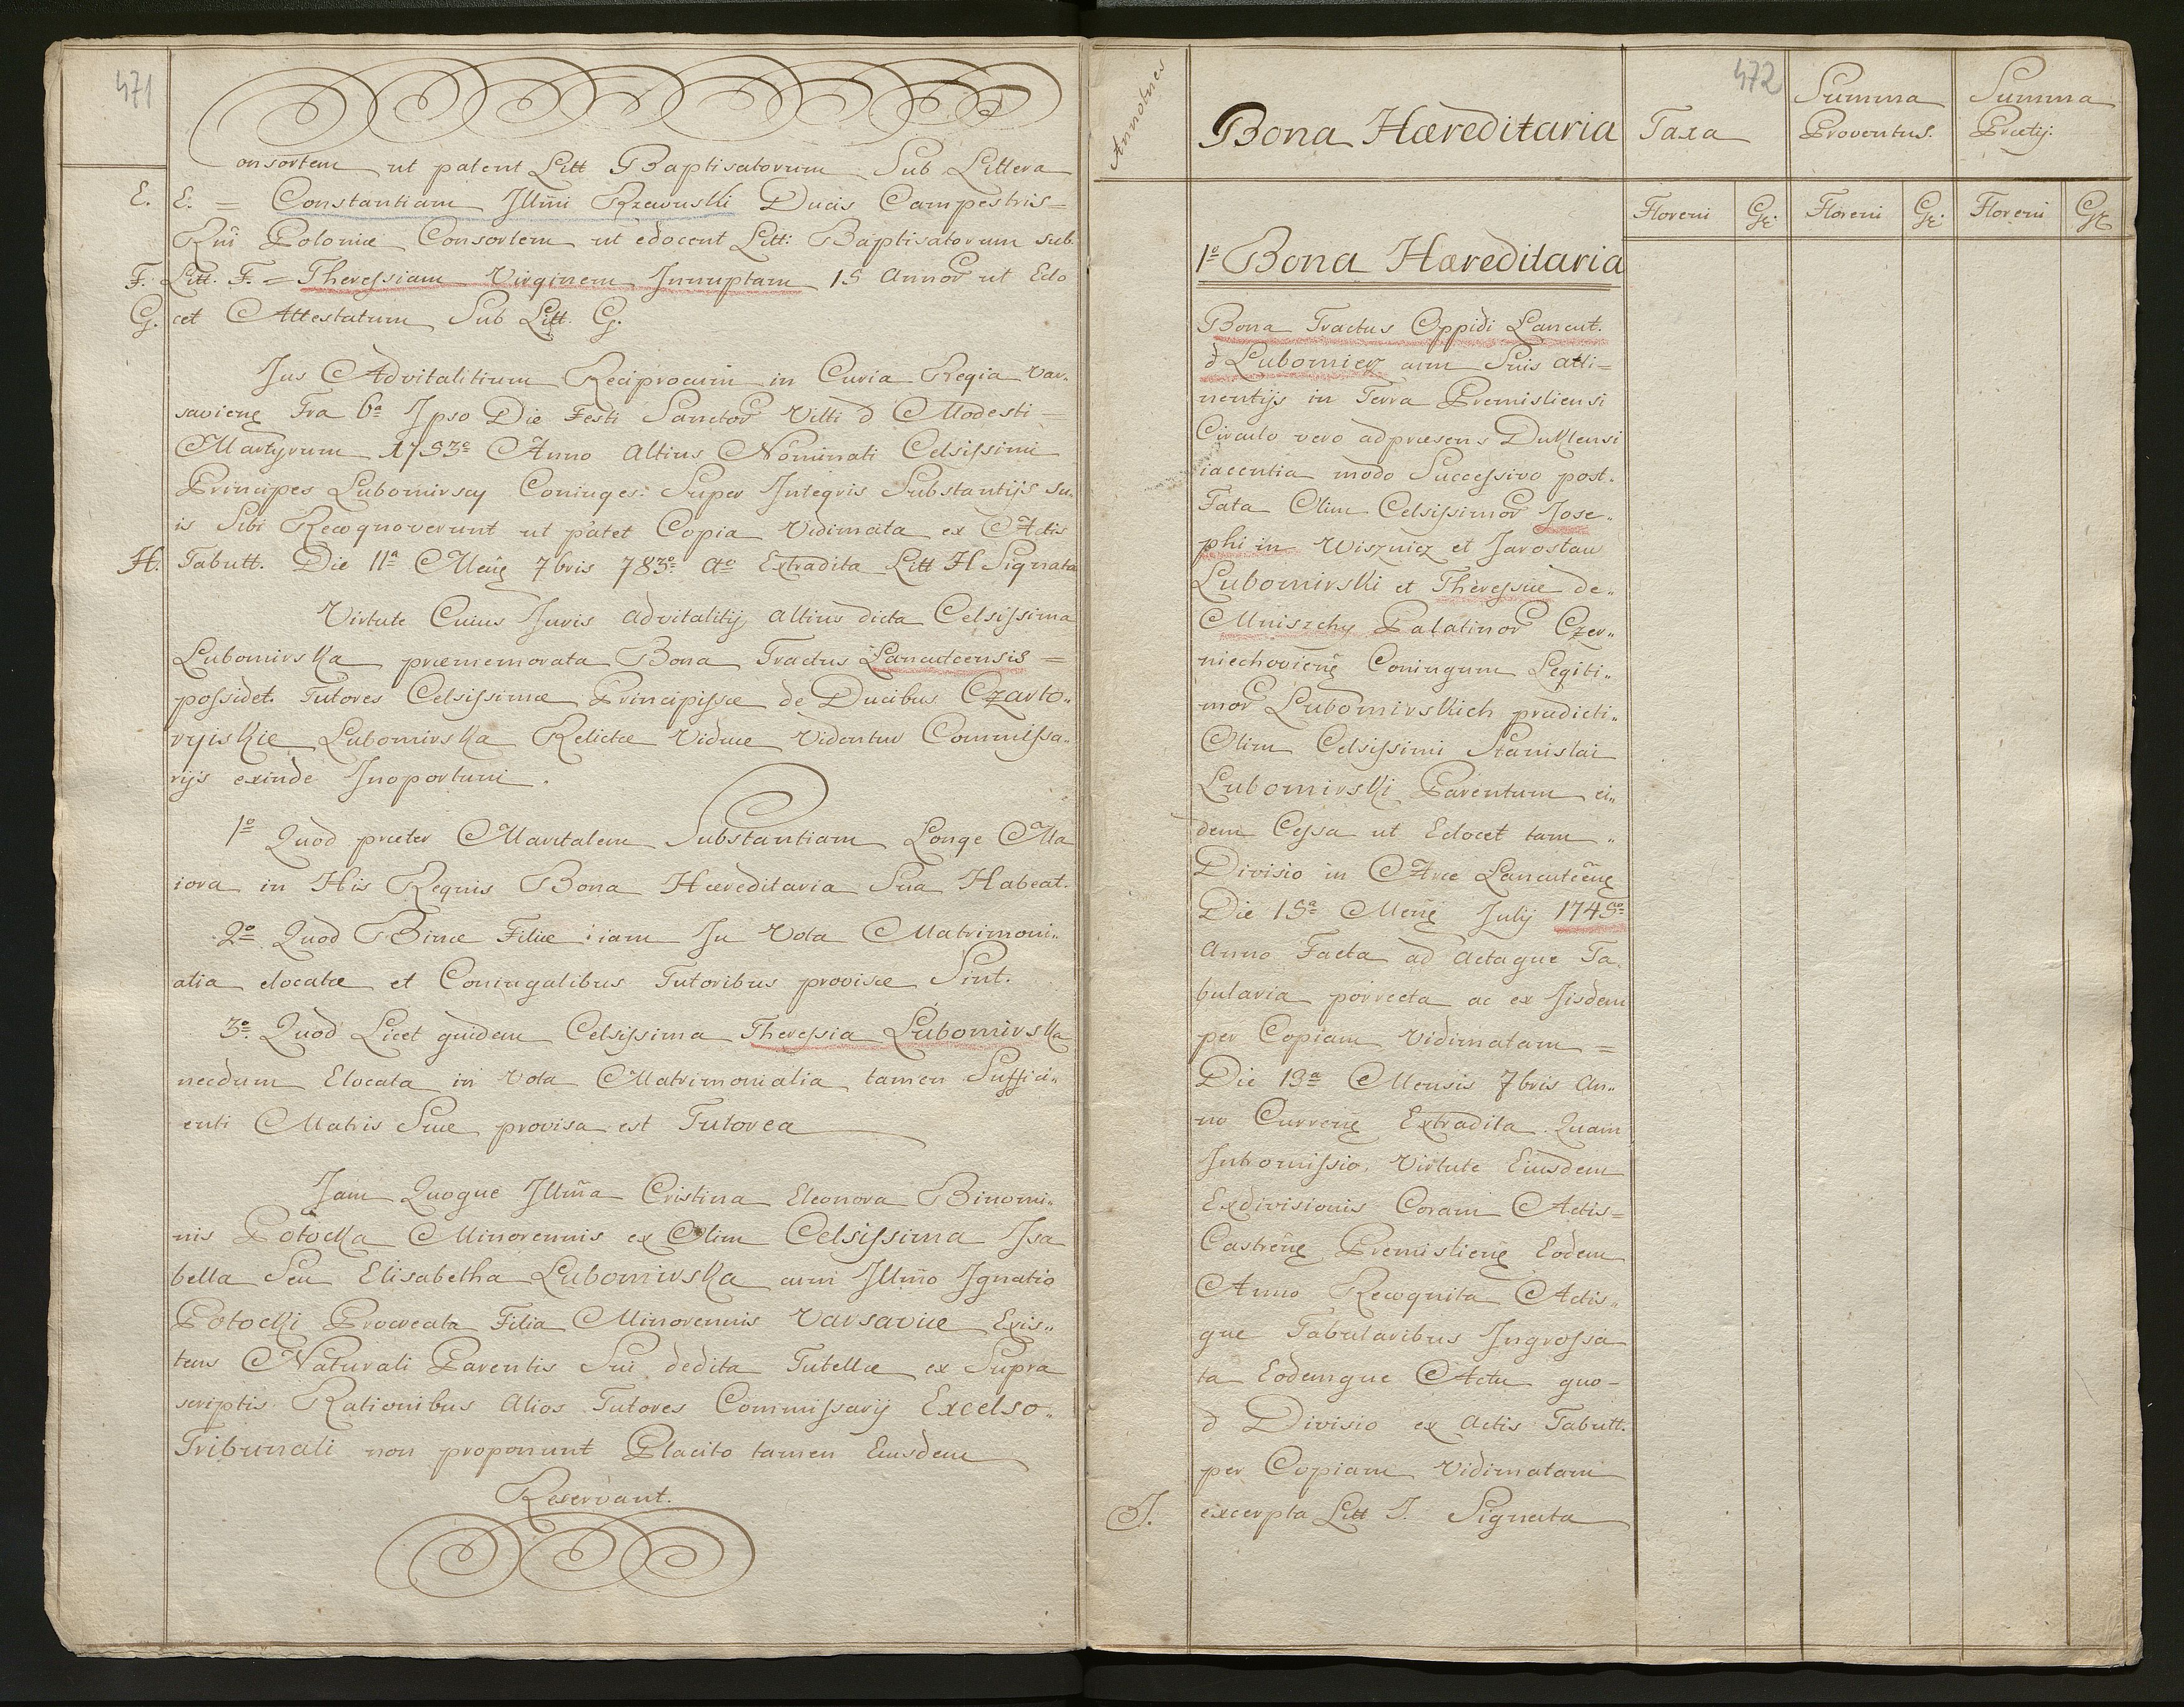 471
Consortem ut patent Litt Baptisatorum Sub Littera
E. E. = Constantiam Illmi Rzewuski Ducis Campestris =
Rni Poloniæ Consortem ut edocent Litt: Baptisatorum sub.
F. Litt. F. = Theressiam Virginem Innuptam 15 annor ut Edo
G. cet Attestatum Sub Litt. G.
Jus Advitalitium Reciprocum in Curia Regia Var„
savienę Fra 6a Ipso Die Festi Sanctor Vitti & Modesti =
Martyrum 1753o Anno Altius Nominati Celsissimi
Principes Lubomirscy Coniuges: Super Integris Substantijs su„
is Sibi Recognoverunt ut patet Copia Vidimata ex Actis
H. Tabutt. Die 11a Menę 7bris 783o ao Extradita Litt H Signata
Virtute Cuius Juris advitalitij altius dicta Celsissima
Lubomirska præmemorata Bona Tractus Lancutcensis =
possidet. Tutores Celsissimæ Principissæ de Ducibus Czarto„
ryiskie Lubomirska Relictæ Viduæ Videntur Commissa„
rijs exinde Inoportuni.
1o Quod præter Maritalem Substantiam Longe Ma
iora in His Regnis Bona Hæreditaria Sua Habeat.
2o Quod Binæ Filiæ iam In Vota Matrimoni„
alia elocatæ et Coniugalibus Tutoribus provisæ Sint.
3o Quod Licet quidem Celsissima Theressia Lubomirska
necdum Elocata in Vota Matrimonialia tamen Suffici„
enti Matris Suæ provisa est Tutorea
Jam Quoque Illma Cristina Eleonora Binomi„
nis Potocka Minorennis ex Olim Celsissima Isa
bella Seu Elisabetha Lubomirska cum Illmo Ignatio
Potocki Procreata Filia Minorennis Varsaviæ Exis„
tens Naturali Parentis Sui dedita Tutellæ ex Supra
scriptis Rationibus Alios Tutores Commissarij Excelso„
Tribunali non proponunt Placito tamen Eiusdem
Reservant.
472
Annotnes
Bona Hæreditaria
Taxa
Summa Proventus.
Summa Prætij.
Floreni Gr. Floreni Gr. Floreni Gr
1o Bona Hæreditaria
Bona Tractus Oppidi Lancut.
& Lubomierz cum Suis atti=
nentijs in Terra Premisliensi
Circulo vero adpræsens Duklensi
iacentia modo Successivo post„
Fata Olim Celsissimor Jose„
phi in Wisznicz et Jaroslau
Lubomirski et Theressiæ de„
Mniszchy Palatinor Czer„
niechovienę Coniugum Legiti„
mor Lubomirskich prædicti„
Olim Celsissimi Stanislai
Lubomirski Parentum ei„
dem Cessa ut Edocet tam „
Divisio in Arce Lancutcenę
Die 15a Menę Julij 1745o
Anno Facta ad actaque Ta„
bularia porrecta ac ex Iisdem
per Copiam Vidimatam =
Die 13a Mensis 7bris an„
no Currenę Extradita. Quam
Intromissio. Virtute Eiusdem
Exdivisionis Coram Actis=
Castrenę Premislienę Eodem
Anno Recognita Actis„
que Tabularibus Ingrossa
ta Eodemque Actu quo-
d Divisio ex actis Tabutt.
per Copiam Vidimatam
J. excerpta Litt J. Signata